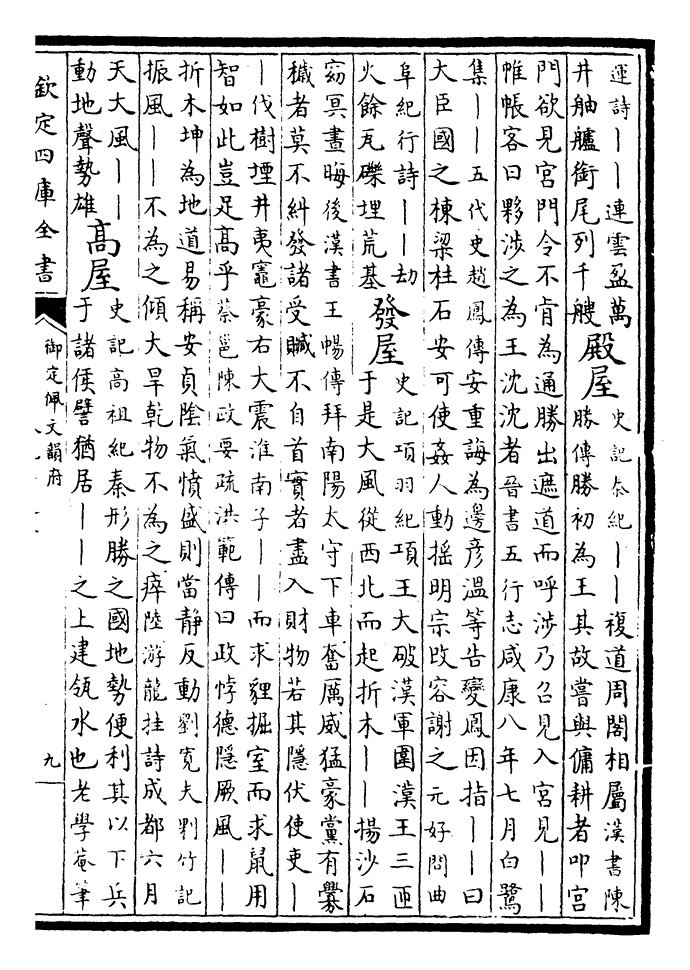 運詩——連雲盈萬
井舳艫銜尾列千艘
殿屋
史記秦紀——複道周閣相屬漢書陳
勝傳勝初為王其故嘗與傭耕者叩宮
門欲見宮門令不肯為通勝出遮道而呼涉乃召見入宮見——
帷帳客曰夥涉之為王沈沈者晉書五行志咸康八年七月白鷺
集——五代史趙鳳傳安重誨為邊彥溫等告變鳳因指——曰
大臣國之棟梁柱石安可使姦人動搖明宗改容謝之元好問曲
阜紀行詩——劫
火餘瓦礫埋荒基
發屋
史記項羽紀項王大破漢軍圍漢王三匝
于是大風從西北而起折木——揚沙石
窈冥晝晦後漢書王暢傳拜南陽太守下車奮厲威猛豪黨有釁
穢者莫不糾發諸受贓不自首實者盡入財物若其隱伏使吏—
—伐樹堙井夷竈豪右大震淮南子——而求貍掘室而求鼠用
智如此豈足髙乎蔡邕陳政要疏洪範傳曰政悖德隱厥風——
折木坤為地道易稱安貞陰氣憤盛則當靜反動劉寬夫剗竹記
振風——不為之傾大旱乾物不為之瘁陸游龍挂詩成都六月
天大風——
動地聲勢雄
髙屋
史記高祖紀秦形勝之國地勢便利其以下兵
于諸侯譬猶居——之上建瓴水也老學菴筆
欽定四庫全書
御定佩文韻府
九